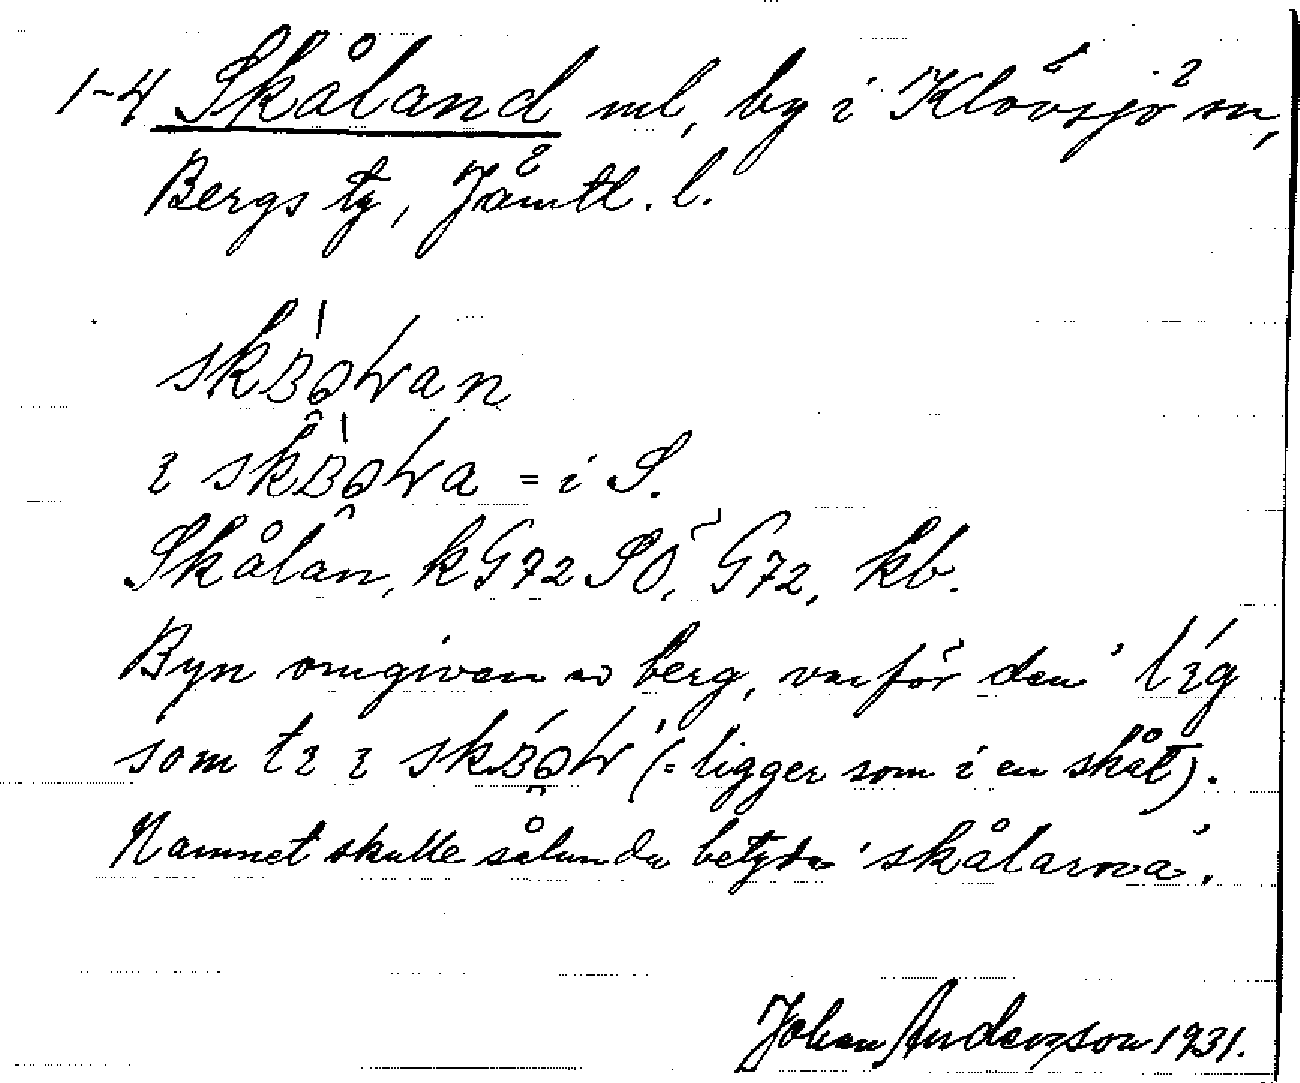 1-4 Skåland ml, by i Klövsjö sn,
Bergs tg, Jämtl. l.
= i S.
Skålan, KG72 SO, G72, kb.
Byn omgiven av berg, varför den
som (= ligger som i en skål).
Namnet skulle sålunda betyda 'skålarna'.
Johan Anderzson 1931.